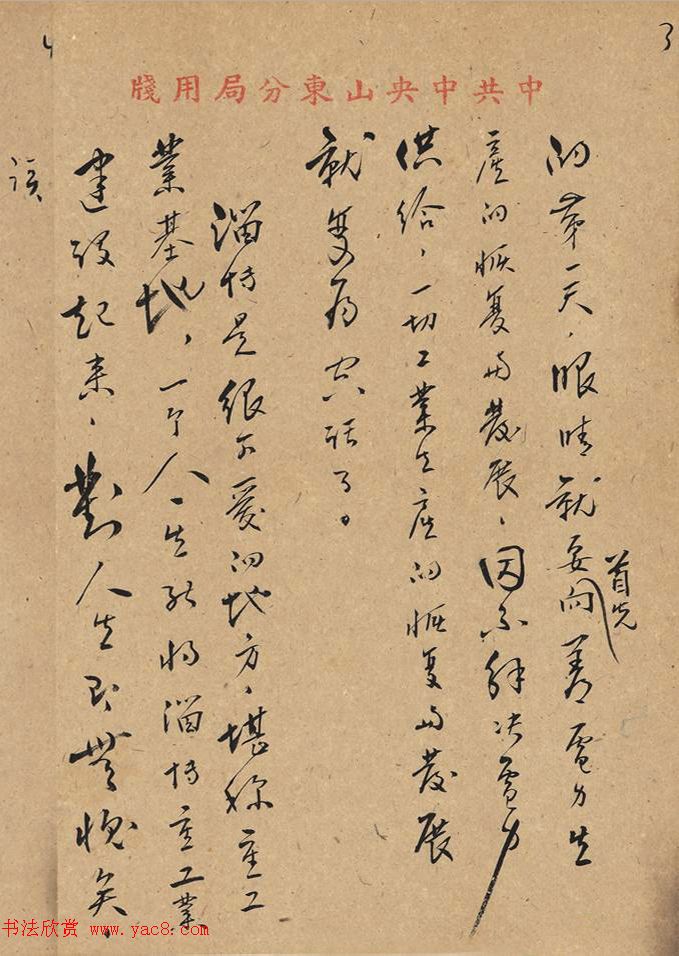 3
4
中共中央山東分局用牋
的第一天，眼睛就要首先向着電力生
產的恢复与發展，因不解决電力
供給，一切工業生産的恢复与發展
就变为空話了。
淄博是很可爱的地方，堪称重工
業基地，一个人一生能将淄博重工業
建設起来，對人生即無愧矣，
该
书法欣赏 www.yac8.com